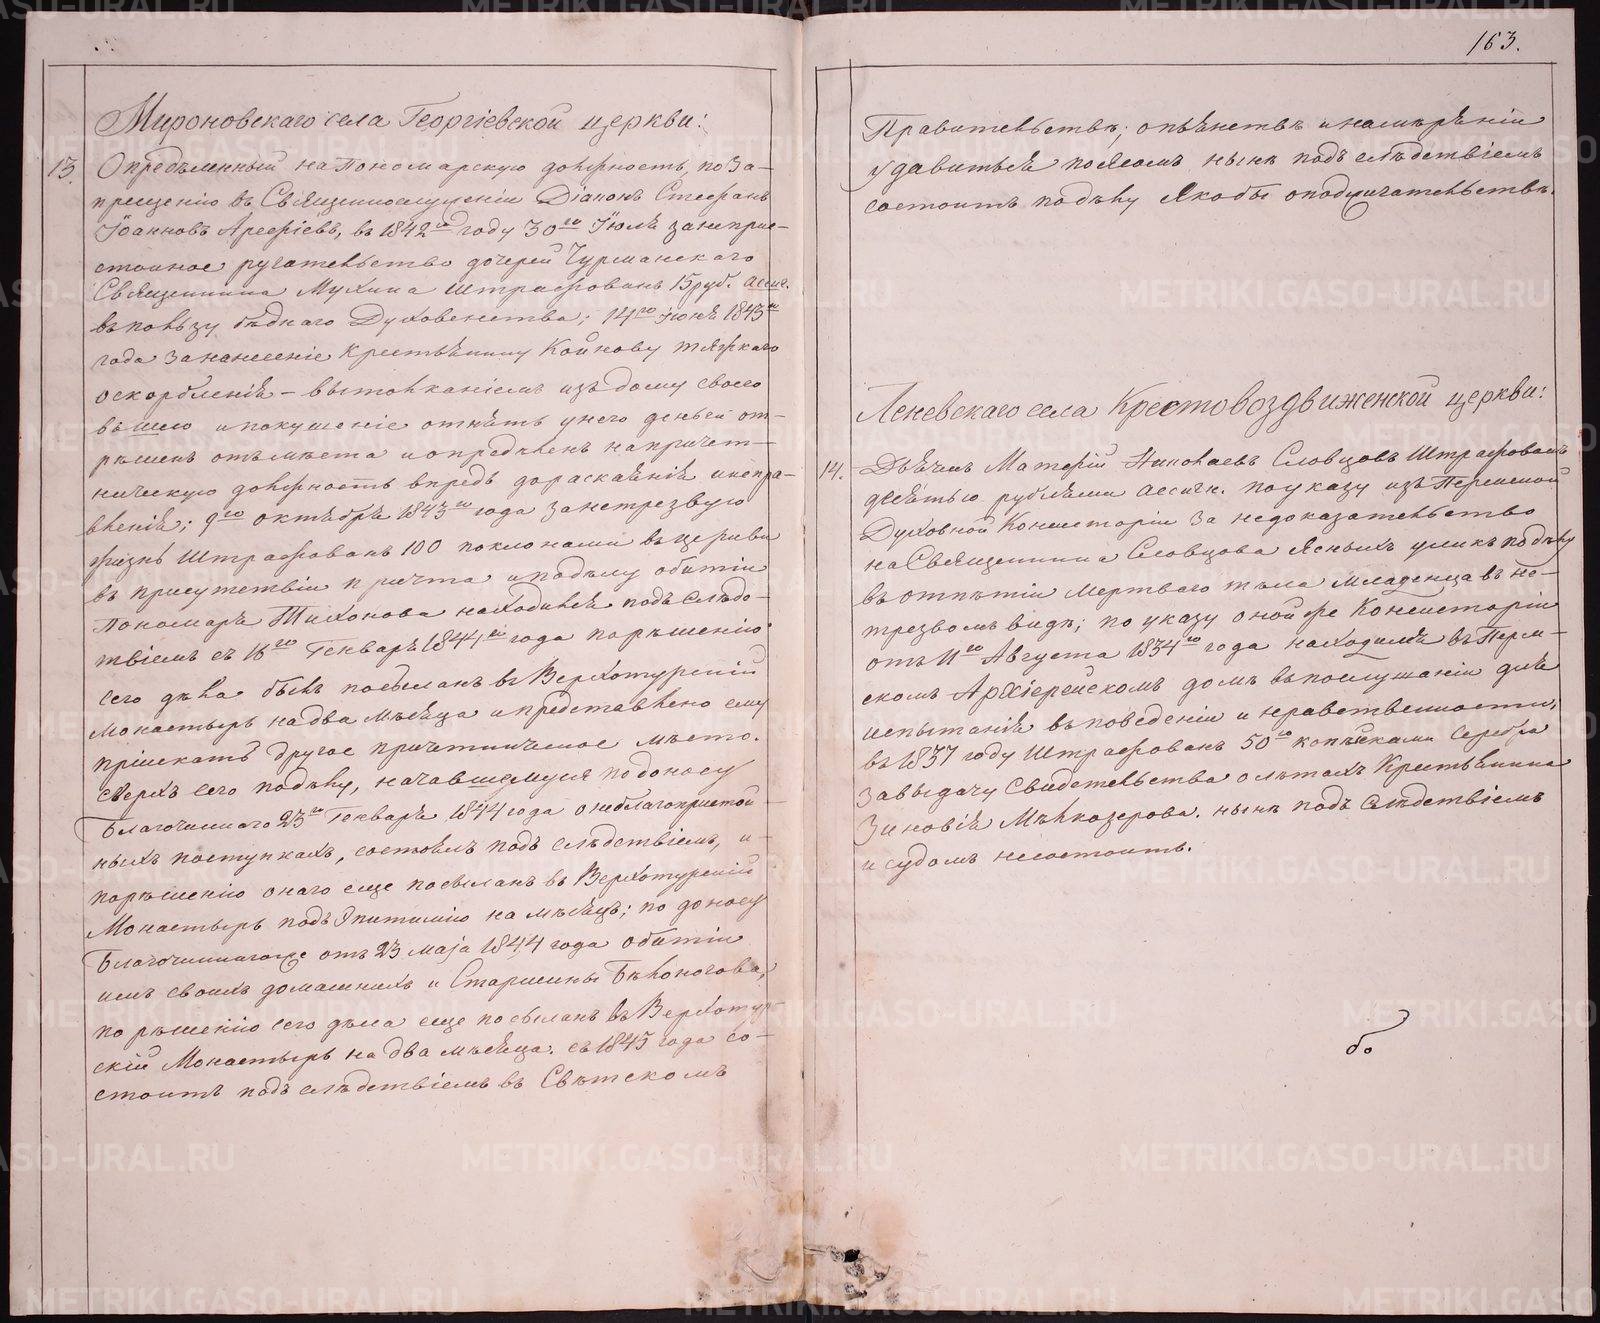 163.
Мироновскаго села Георгіевской церкви:
13. Опредѣленный на Пономарскую должность, по за-
прещенію въ Священнослуженіи Діаконъ Стефанъ
Іоанновъ Арефіевъ, въ 1842го году 30го Іюля за непри-
стойное ругательство дочерей Чурманскаго
Священника Мухина штрафованъ 15 руб. ассиг.
въ пользу бѣднаго Духовенства; 14го Іюня 1843го
года за нанесеніе Крестьянину Койнову тяжкаго
оскорбленія – вытолканіемъ изъ дому своего
въ шею и покушеніе отнять у него деньги от-
рѣшенъ отъ мѣста и опредѣленъ на причет-
ническую должность впредь до раскаянія и испра-
вленія; 9го октября 1843го года за нетрезвую
жизнь штрафованъ 100 поклонами въ церкви
въ присутствіи причта и по дѣлу о битіи
Пономаря Тихонова находился подъ слѣд-
ствіемъ съ 16го Генваря 1844го года по рѣшенію
сего дѣла былъ посыланъ въ Верхотурскій
монастырь на два мѣсяца и предоставлено ему
пріискать другое причетническое мѣсто.
Сверхъ сего по дѣлу, начавшемуся по доносу
Благочиннаго 23го Генваря 1844 года о неблагопристой-
ныхъ поступкахъ, состоялъ подъ слѣдствіемъ, и
по рѣшенію онаго еще посыланъ въ Верхотурскій
Монастырь подъ Эпитимію на мѣсяцъ; по доносу
Благочиннаго же отъ 23 маія 1844 года о битіи
имъ своихъ домашнихъ и Старшины Бѣлоногова,
по рѣшенію сего дѣла еще посыланъ въ Верхотур-
скій Монастырь на два мѣсяца. съ 1845 года со-
стоитъ подъ слѣдствіемъ въ Свѣтскомъ
Правительствѣ; о пьянствѣ и намѣреніи
удавиться поясомъ нынѣ подъ слѣдствіемъ
состоитъ по дѣлу якобы о подлжигательствѣ.
Леневскаго села Крестовоздвиженской церкви:
14. Дьячекъ Матфій Николаевъ Словцовъ штрафованъ
десятью рублями ассигн. по указу изъ Пермской
Духовной Консисторіи за недоказательство
на Священника Словцова ясныхъ уликъ по дѣлу
въ отпѣтіи мертваго тѣла младенца въ не-
трезвомъ видѣ; по указу оной же Консисторіи
отъ 11го Августа 1834го года находился въ Перм-
скомъ Архіерейскомъ домѣ въ послушаніи для
испытанія въ поведеніи и нравственности;
въ 1837 году штрафованъ 50ю копѣйками серебра
за выдачу Свидетельства о лѣтахъ Крестьянина
Зиновія Мѣлкозерова. нынѣ подъ слѣдствіемъ
и судомъ не состоитъ.